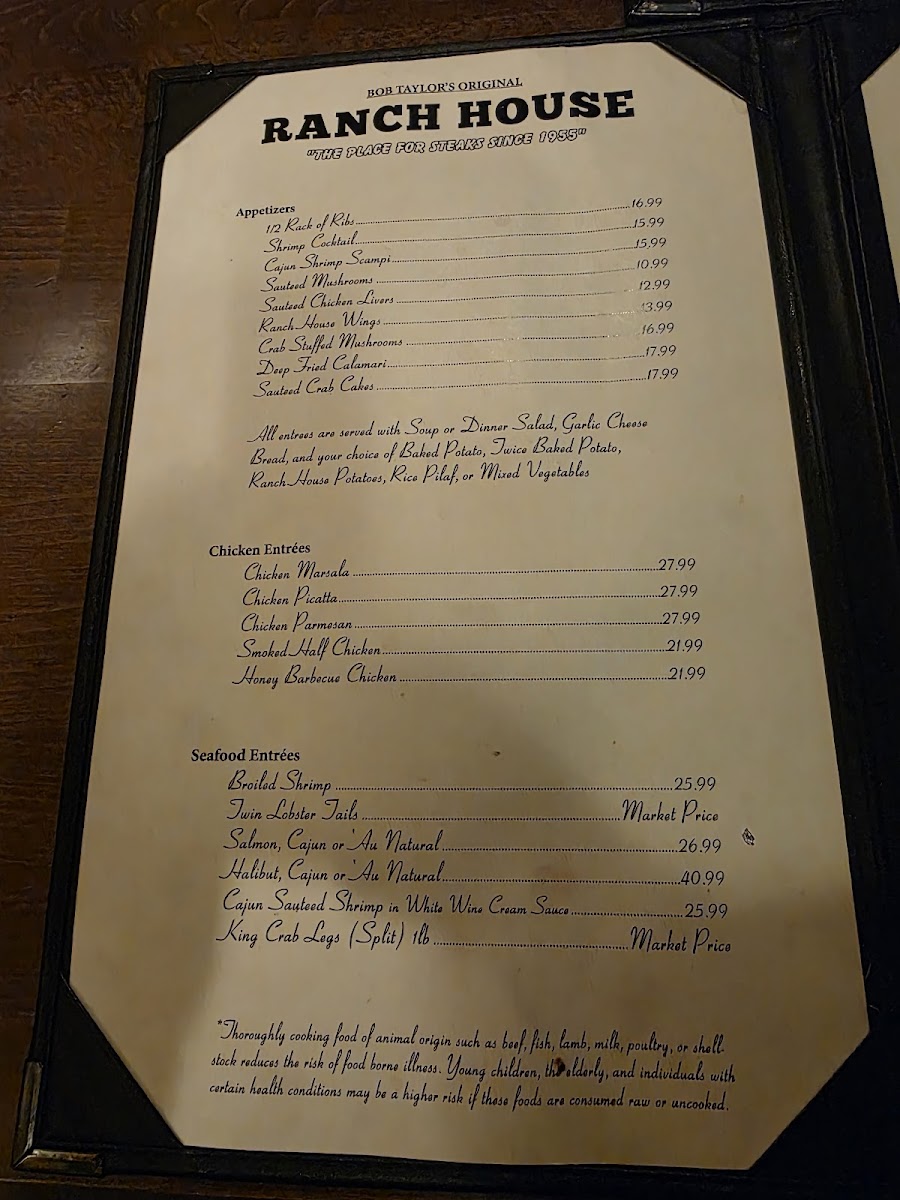 BOB TAYLOR'S ORIGINAL
RANCH HOUSE
"THE PLACE FOR STEAKS SINCE 1955"
Appetizers
1/2 Rack of Ribs 16.99
Shrimp Cocktail 15.99
Cajun Shrimp Scampi 15.99
Sauteed Mushrooms 10.99
Sauteed Chicken Livers 12.99
Ranch House Wings 13.99
Crab Stuffed Mushrooms 16.99
Deep Fried Calamari 17.99
Sauteed Crab Cakes 17.99
All entrees are served with Soup or Dinner Salad, Garlic Cheese
Bread, and your choice of Baked Potato, Twice Baked Potato,
Ranch House Potatoes, Rice Pilaf, or Mixed Vegetables
Chicken Entrées
Chicken Marsala 27.99
Chicken Picatta 27.99
Chicken Parmesan 27.99
Smoked Half Chicken 21.99
Honey Barbecue Chicken 21.99
Seafood Entrées
Broiled Shrimp 25.99
Twin Lobster Tails Market Price
Salmon, Cajun or 'Au Natural 26.99
Halibut, Cajun or 'Au Natural 40.99
Cajun Sauteed Shrimp in White Wine Cream Sauce 25.99
King Crab Legs (Split) 1lb Market Price
*Thoroughly cooking food of animal origin such as beef, fish, lamb, milk, poultry, or shell
stock reduces the risk of food borne illness. Young children, the elderly, and individuals with
certain health conditions may be a higher risk if these foods are consumed raw or uncooked.